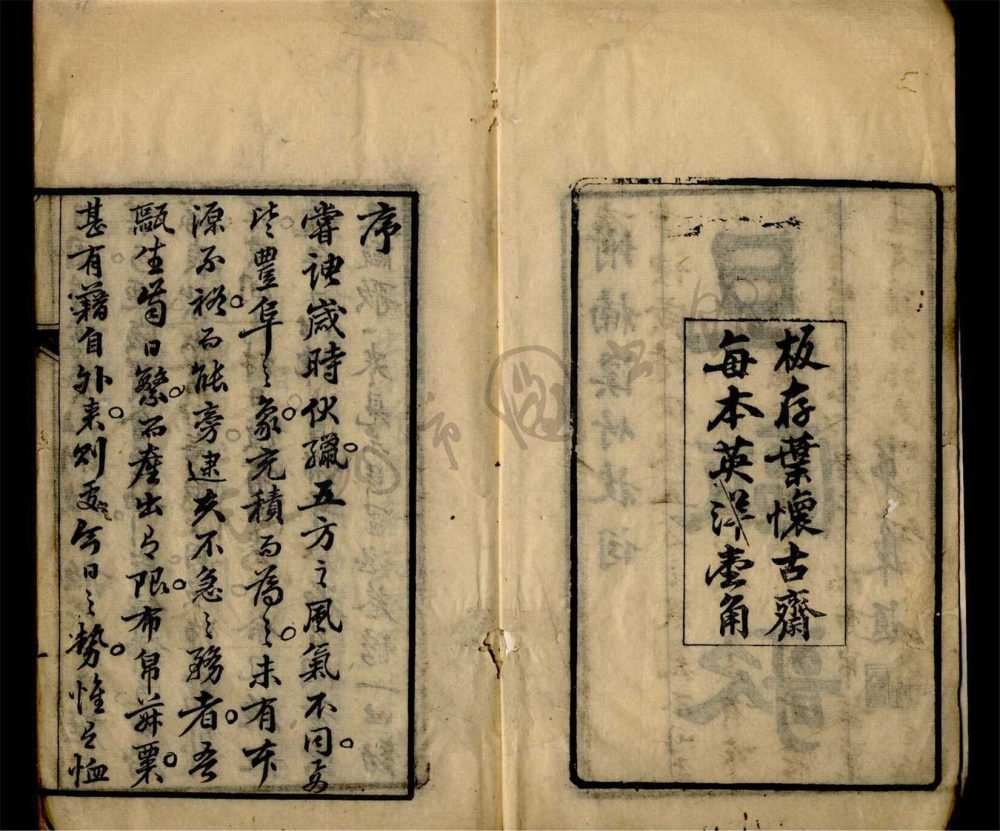 板存葉懷古齋
每本英洋壹角
序
嘗訣歲時伏臘。五方之風氣不同。要
皆豐阜之象。充積而為之。未有本
源不裕。而能旁逮夫不急之務者。吾
甌生齒日繁。而產出有限。布帛菽粟。
甚有藉自外來。則處今日之勢。惟恤